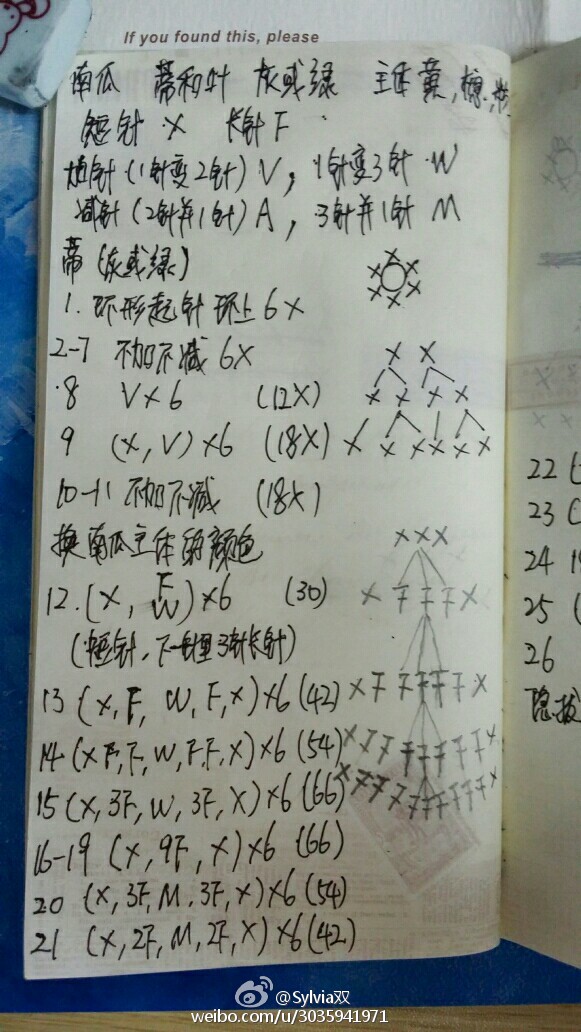 If you found this, please
南瓜 蒂和叶 灰或绿 主体黄,橙,
短针 X 长针 F
加针(1针变2针) V, 1针变3针 W
减针(2针并1针) A, 3针并1针 M
蒂(灰或绿)
1. 环形起针 环上6X
2-7 不加不减 6X
8 V×6 (12X)
9 (X,V)×6 (18X)
10-11 不加不减 (18X)
换南瓜主体的颜色
12.(X, F W)×6 (30)
(短针,下一针里3针长针)
13 (X,F, W,F,X)×6(42)
14 (X F,F,W,F,F,X)×6(54)
15 (X,3F,W,3F,X)×6(66)
16-19 (X,9F,X)×6 (66)
20 (X,3F,M,3F,X)×6(54)
21 (X,2F,M,2F,X)×6(42)
22 (
23 (
24 1
25 (
26
隐拔
@Sylvia双
weibo.com/u/3035941971